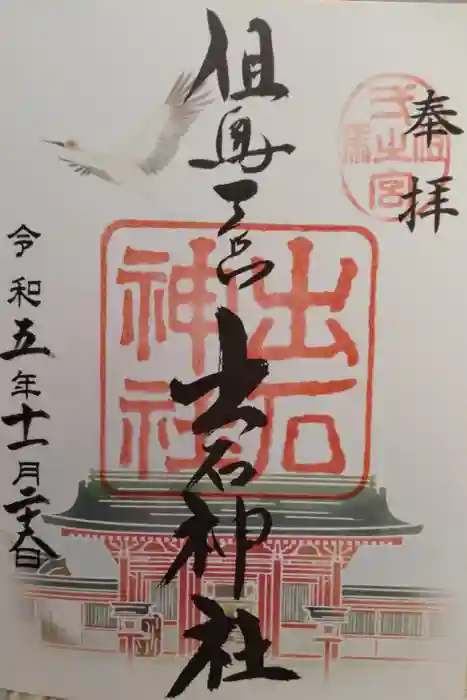 奉拝
但馬一宮
出石神社
出石
神社
令和五年十一月二十六日